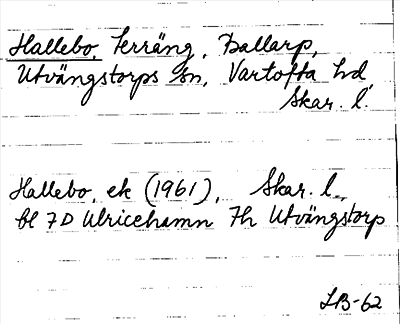 Hallebo, terräng, Ballarp,
Utvängstorps sn, Vartofta hd,
Skar. l.
Hallebo, ek (1961), Skar. l.,
bl 7D Ulricehamn 7h Utvängstorp
LB-62